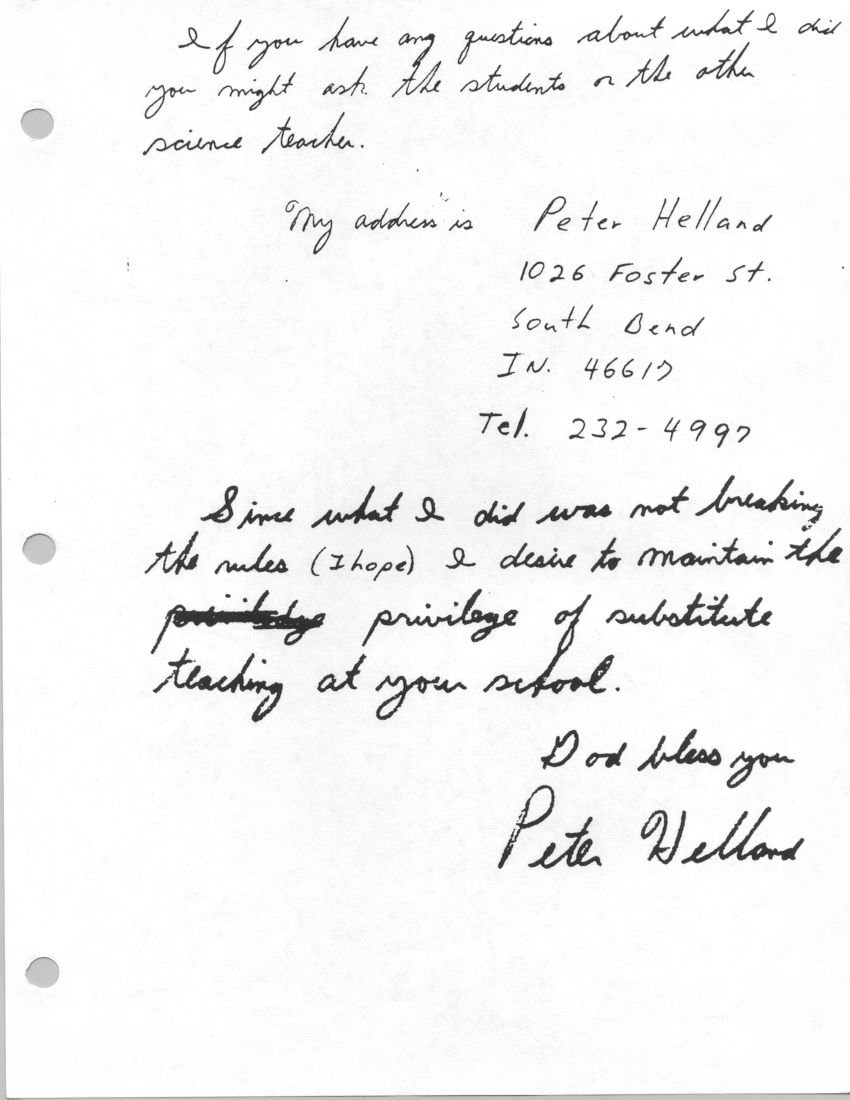 If you have any questions about what I did
you might ask the students or the other
science teacher.
My address is Peter Helland
1026 Foster St.
South Bend
IN. 46617
Tel. 232-4997
Since what I did was not breaking
the rules (I hope) I desire to maintain the
privilege of substitute
teaching at your school.
God bless you
Peter Helland